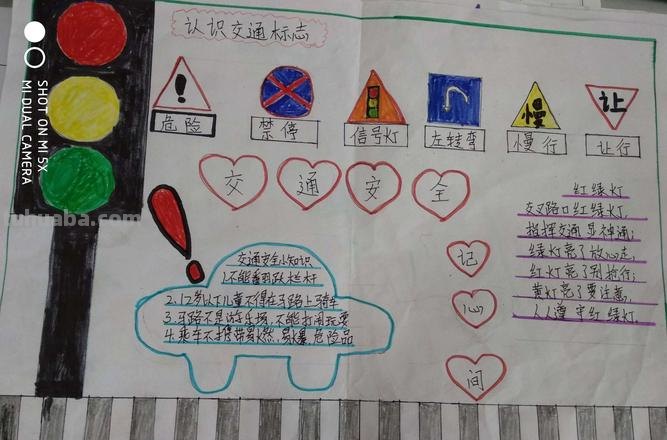 认识交通标志
慢
让
危险
禁停
信号灯
左转弯
慢行
让行
交通安全
记
心
间
红绿灯
交叉路口红绿灯,
指挥交通显神通;
绿灯亮了放心走,
红灯亮了别抢行;
黄灯亮了要注意,
人人遵守红绿灯.
交通安全小知识
1.不能翻越栏杆
2.12岁以下儿童不得在马路上骑车
3.马路不是游乐场,不能打闹玩耍
4.乘车不携带易燃,易爆,危险品
SHOT ON MI 5X
MI DUAL CAMERA
tuhuaba.com